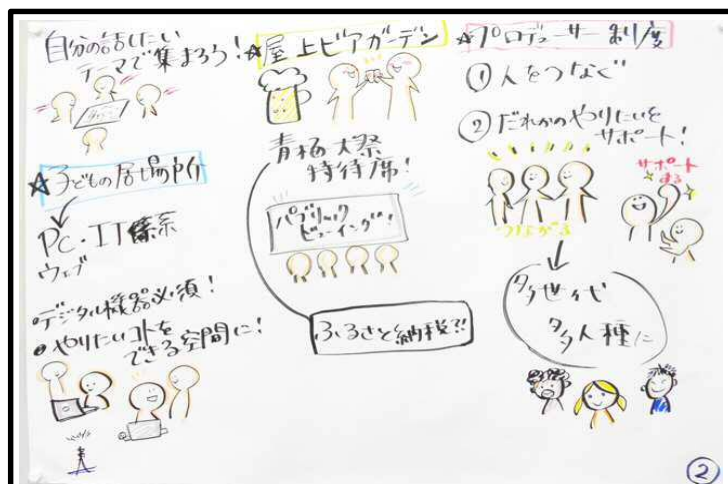 自分の話したい
テーマで集まろう!
☆子どもの居場所
PC・IT系
ウェブ
・デジタル機器必須!
・やりたいコトを
できる空間に!
☆屋上ビアガーデン
青梅大祭
特待席!
パブリック
ビューイング!
ふるさと納税?!
☆プロデューサー制度
①人をつなぐ
②だれかのやりたいを
サポート!
つながる
サポート
する
多世代
多人種に
②